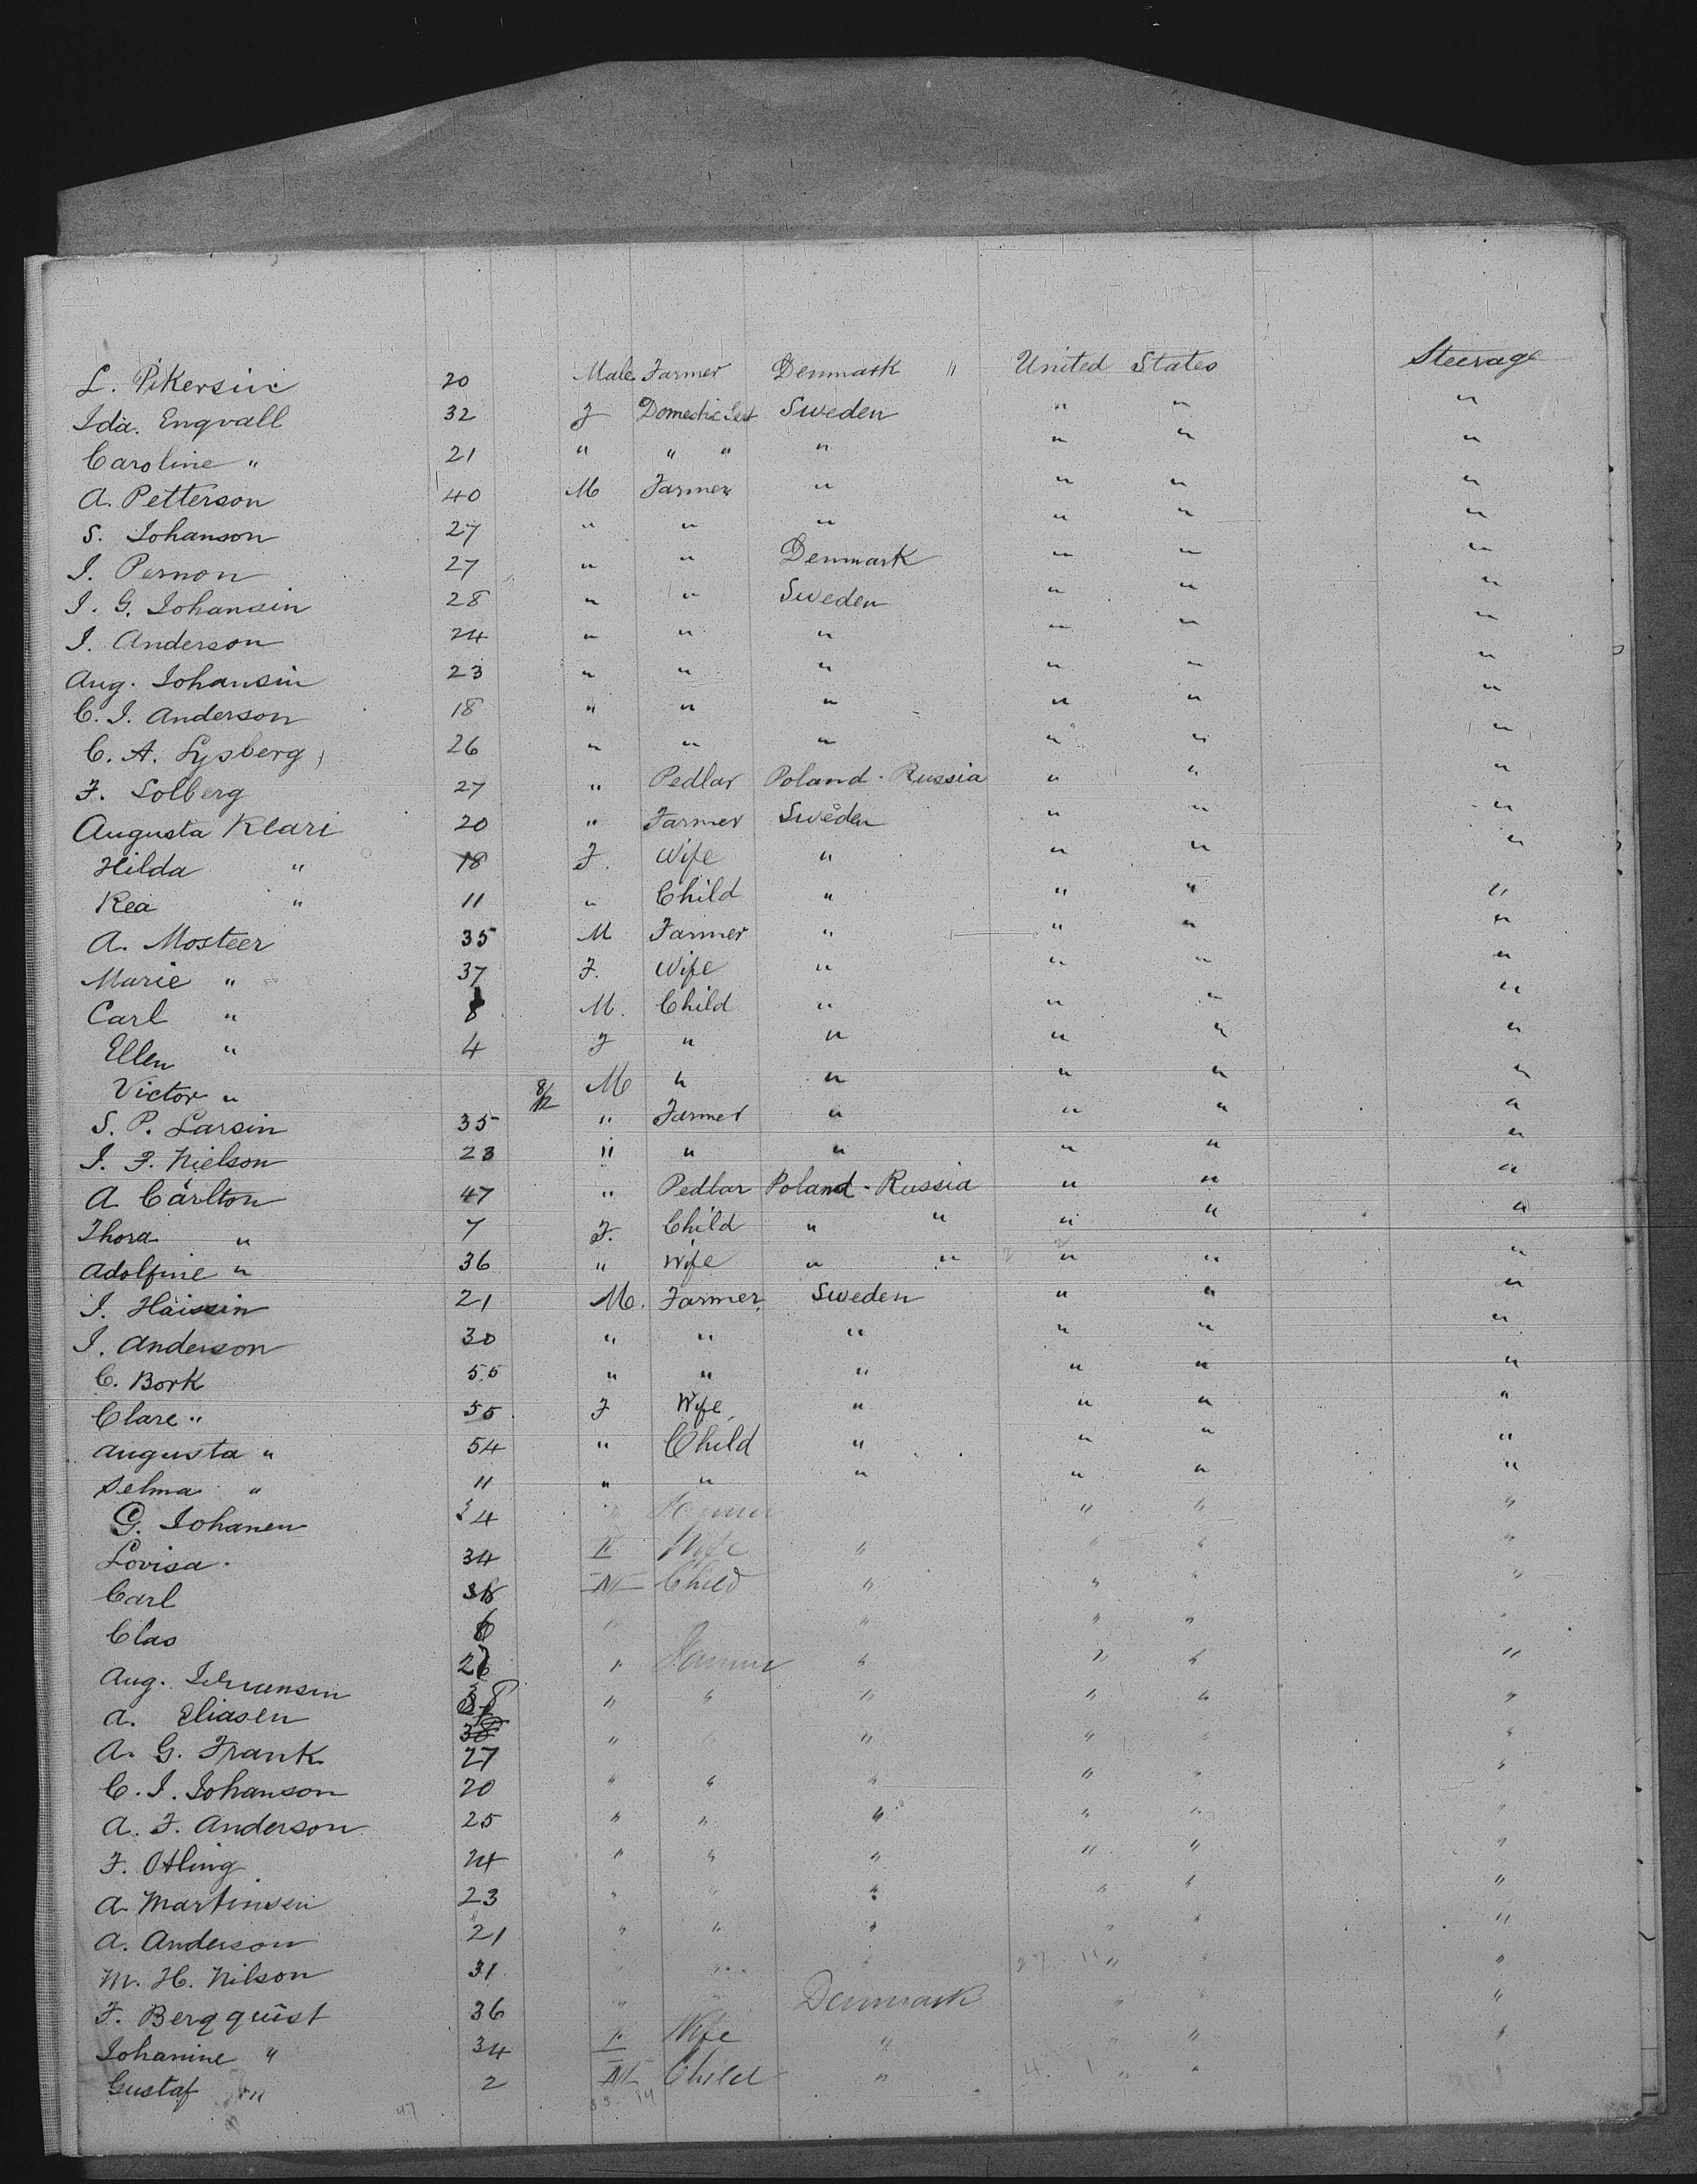 L. Pikersin 20 Male Farmer Denmark " United States Steerage
Ida. Engvall 32 F Domestic Sert Sweden " " "
Caroline " 21 " " " " " " "
A. Petterson 40 M Farmer " " " "
S. Johanson 27 " " " " " "
J. Pernon 27 " " Denmark " " "
J. G. Johansin 28 " " Sweden " " "
J. Anderson 24 " " " " " "
Aug. Johansin 23 " " " " " "
C. J. Anderson 18 " " " " " "
C. A. Lysberg 26 " " " " " "
F. Solberg 27 " Pedlar Poland - Russia " " "
Augusta Klari 20 " Farmer Sweden " " "
Hilda " 18 F. Wife " " " "
Kea " 11 " Child " " " "
A. Mosteer 35 M Farmer " " " "
Marie " 37 F. Wife " " " "
Carl " 8 M. Child " " " "
Ellen " 4 F " " " " "
Victor " 8/12 M " " " " "
S. P. Larsin 35 " Farmer " " " "
J. F. Nielson 23 " " " " " "
A Carlton 47 " Pedlar Poland - Russia " " "
Thora " 7 F. Child " " " " "
Adolfine " 36 " Wife " " " " "
J. Haissin 21 M. Farmer Sweden " " "
J. Anderson 30 " " " " " "
C. Bork 55 " " " " " "
Clare " 55 F Wife " " " "
Augusta " 54 " Child " " " "
Selma " 11 " " " " " "
G. Johanen 34 " Farmer " " "
Lovisa 34 F Wife " " " "
Carl M Child " " " "
Clas 6 " " " " "
Aug. " Farmer " " " "
A. Eliasen 38 " " " " " "
A. G. Frank 27 " " " " " "
C. J. Johanson 20 " " " " " "
A. F. Anderson 25 " " " " " "
F. Otling 24 " " " " " "
A Martinsen 23 " " " " " "
A. Anderson 21 " " " " " "
M. H. Nilson 31 " " " " " "
F. Bergquist 36 " Denmark " " "
Johanine " 34 F. Wife " " " "
Gustaf " 2 M Child " " "
47